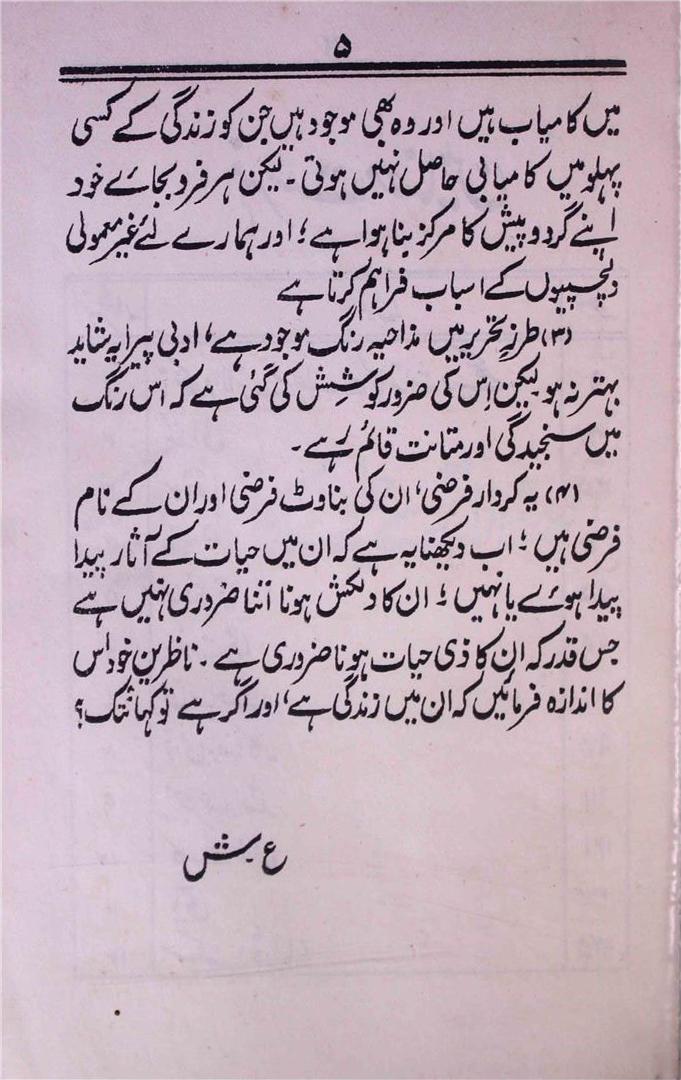 ۵
میں کامیاب ہیں اور وہ بھی موجود ہیں جن کو زندگی کے کسی
پہلو میں کامیابی حاصل نہیں ہوتی ۔ لیکن ہر فرد بجائے خود
اپنے گرد و پیش کا مرکز بنا ہوا ہے ؛ اور ہمارے لئے غیر معمولی
دلچسپیوں کے اسباب فراہم کرتا ہے
(۳) طرزِ تحریر میں مذاحیہ رنگ موجود ہے، ادبی پیرایہ شاید
بہتر نہ ہو ۔ لیکن اِس کی ضرور کوشِش کی گئی ہے کہ اس رنگ
میں سنجیدگی اور متانت قائم رہے ۔
(۴) یہ کردار فرضی، ان کی بناوٹ فرضی اور ان کے نام
فرضی ہیں ؛ اب دیکھنا یہ ہے کہ ان میں حیات کے آثار پیدا
پیدا ہوئے یا نہیں ؛ ان کا دلکش ہونا اتنا ضروری نہیں ہے
جس قدر کہ ان کا ذی حیات ہونا ضروری ہے ۔ ناظرین خود اس
کا اندازہ فرمائیں کہ ان میں زندگی ہے، اور اگر ہے تو کہانتک ؟
ع ۔ ش